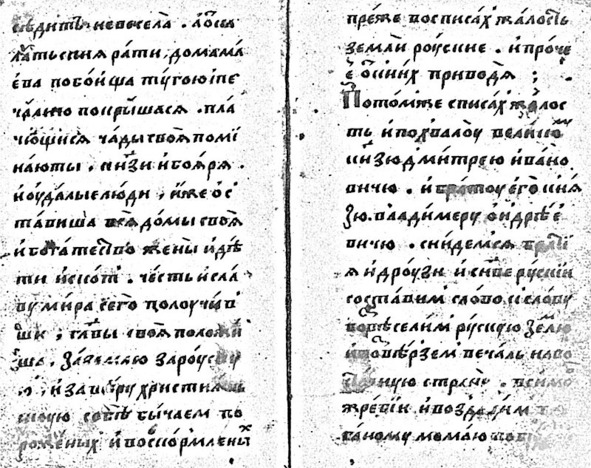 сѣдитъ невесела . а ѿ ка
латьския рати , до мама
ева побоища тугою і пе
чалию покрышася . пла
чющися чады своя помі
наюты . кнзи и бояря .
и оудалые люди , иже ос
тавиша вся домы своя
и богатество жены и дѣ
ти и скот . честь и сла
ву мира сего полоучив
ши , главы своя положи
ша , за землю за роускую
и за вѣру християнь
скую собѣ бы чаем по
роженых и воскормленых
преже восписах жалость
земли роуские . и проче
е ѿ книг приводя ;
Потом же списах жалос
ть и похвалоу великому
кнзю дмитрею ивано
вичю . и братоу его кня
зю . владимеру ѡндрѣе
вичю . снидемся браті
я и дроузи и снве рускии
составим слово к слову
возвеселим рускую землю
и повѣрзем печаль на вос
точную страну . в симо
в жребии и воздадим по
ганому момаю побѣ